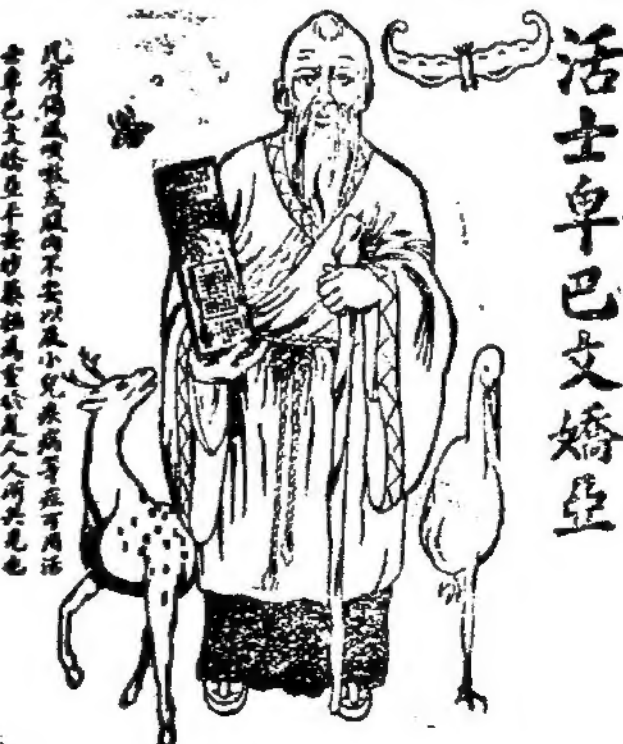 活士卑巴文嬌亞
凡有傷風咳嗽五服內不安以及小兒疾病等症可用活
士卑巴文嬌亞平安妙藥極為靈效是人人所共見也